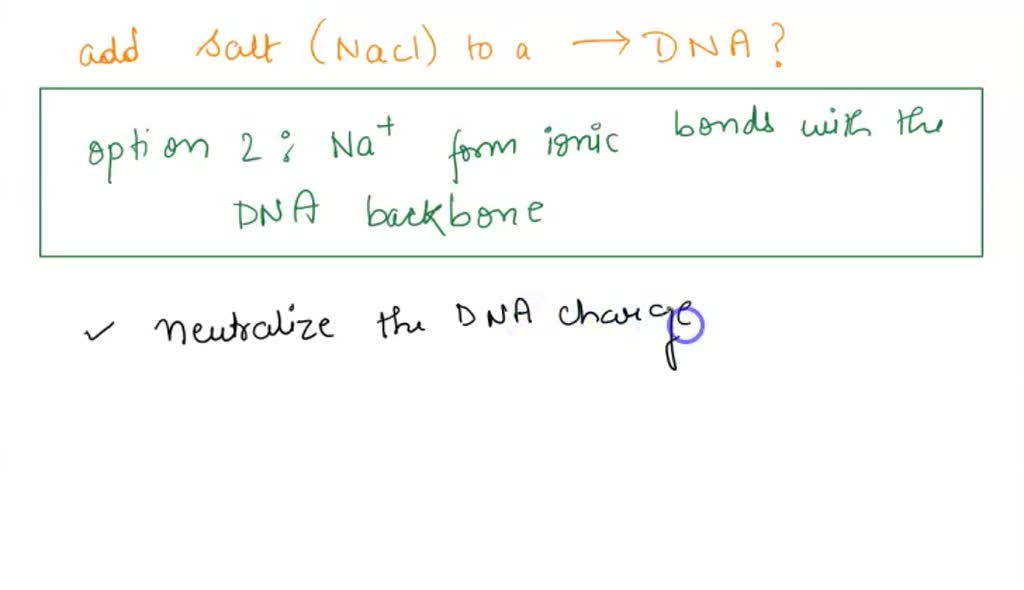 add salt (NaCl) to a → DNA?
option 2: Na+ form ionic bonds with the
DNA backbone
✓ neutralize the DNA charge